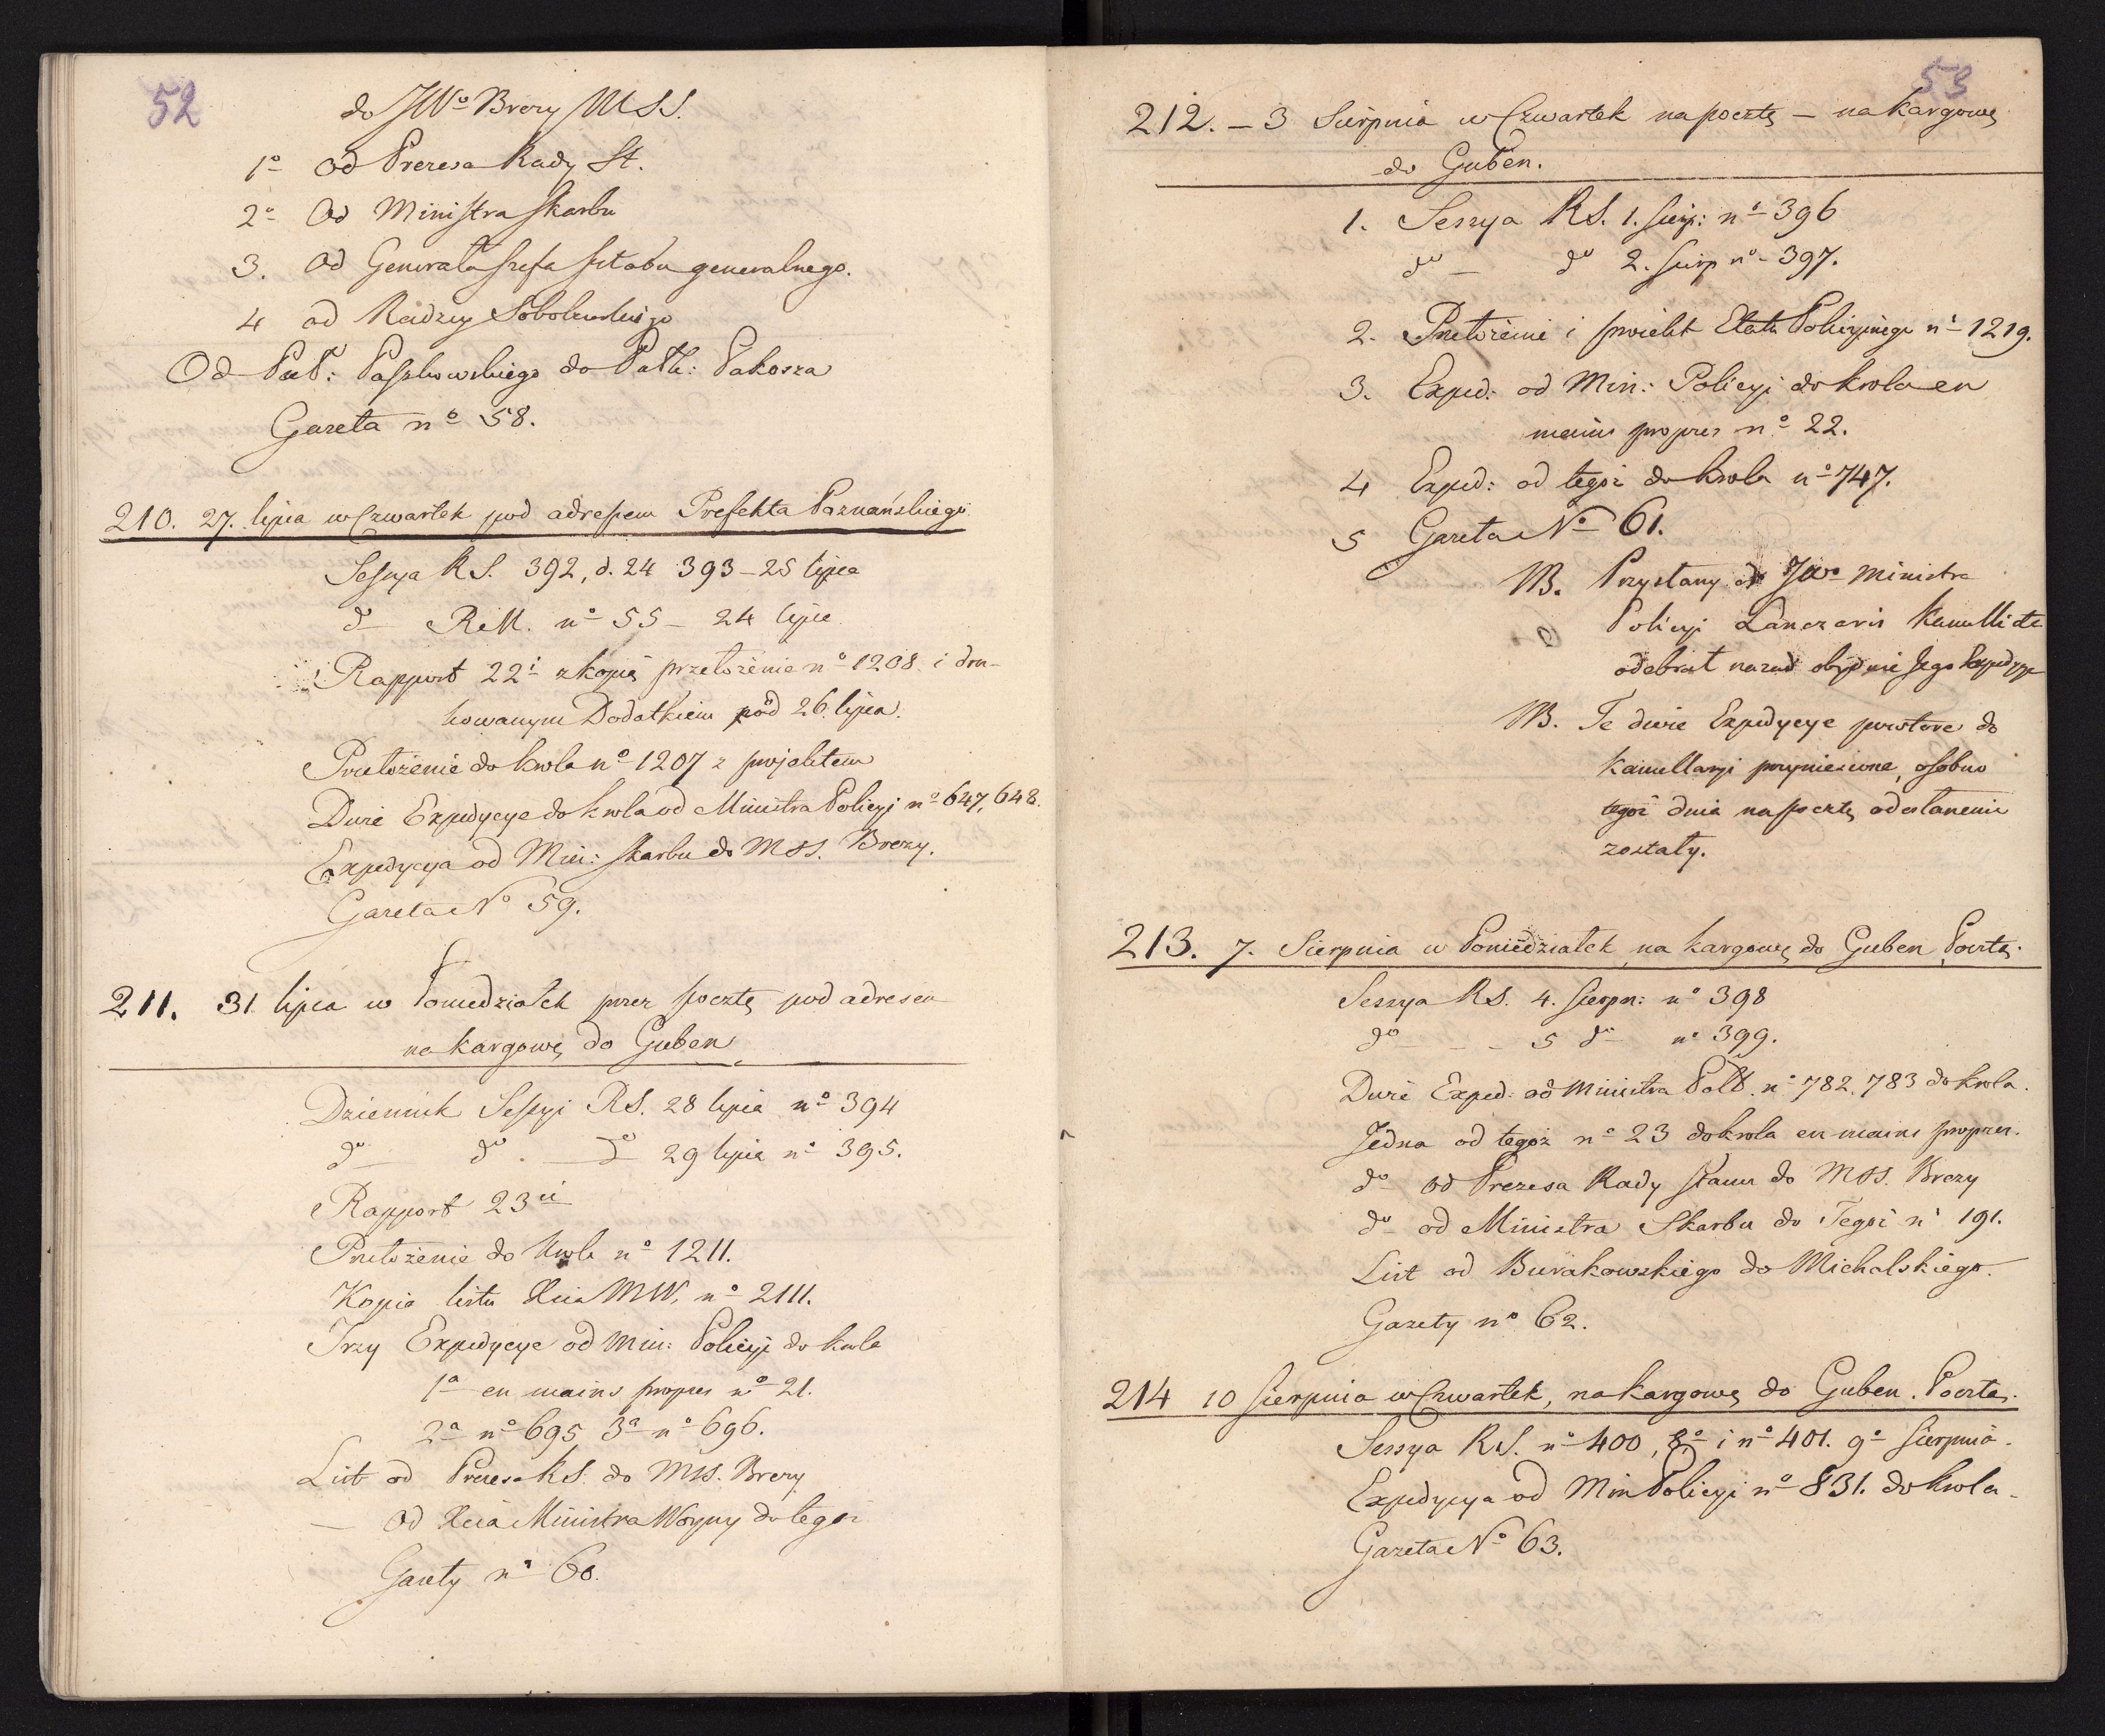 52
do JWo Brezy MSS.
1o od Prezesa Rady St.
2o Od Ministra Skarbu
3. Od Generała Szefa sztabu generalnego.
4 od Radzcy Sobolewskiego
Od Paszkowskiego do Pakosza
Gazeta no 58.
210. 27. lipca w Czwartek pod adressem Prefekta Poznańskiego
Sessya RS. 392, d. 24 393 – 25 lipca
do RM. no 55 – 24 lipca
Rapport 22i z kopią przełożenia no 1208 i dru-
kowanym Dodatkiem pod 26. lipca.
Przełożenie do króla no 1207 z projektem
Dwie Expedycye do króla od Ministra Policyi no 647, 648.
Expedycya od Min: Skarbu do MSS. Brezy.
Gazeta No 59.
211. 31 lipca w Poniedziałek przez pocztę pod adresem
na Kargowę do Guben
Dziennik Sessyi RS. 28 lipca no 394
do do do 29 lipca no 395.
Rapport 23ii
Przełożenie do Króla no 1211.
Kopia listu Xcia MW. no 2111.
Trzy Expedycye od Min: Policyi do króla
1a en mains propres no 21.
2a no 695 3a no 696.
List od Prezesa RS. do MSS. Brezy
— od Xcia Ministra Woyny do tegoż
Gazety no 60.
53
212. – 3 Sierpnia w Czwartek na pocztę – na Kargowę
do Guben.
1. Sessya RS. 1. Sierp: no 396
do — do 2. Sierp no 397.
2. Przełożenie i projekt Etatu Policyjnego no 1219.
3. Exped: od Min: Policyi do króla en
mains propres no 22.
4 Exped: od tegoż do króla no 747.
5 Gazeta No 61.
NB. Przysłany od JWo Ministra
Policyi
odebrał nazad obydwie Jego Expedycye
NB. Te dwie Expedycye powtore do
Kancellaryi przyniesione, osobno
tegoż dnia na pocztę odesłanemi
zostały.
213. 7. Sierpnia w Poniedziałek na Kargowę do Guben Pocztą.
Sessya RS. 4. Sierpn: no 398
do — — 5 do no 399.
Dwie Exped: od Ministra no 782. 783 do króla.
Jedna od tegoż no 23 do króla en mains propres.
do od Prezesa Rady Stanu do MSS. Brezy
do od Ministra Skarbu do Tegoż no 191.
List od Burakowskiego do Michalskiego.
Gazety no 62.
214 10 Sierpnia w Czwartek, na Kargowę do Guben. Pocztą.
Sessya RS. no 400, 8o i no 401. 9o Sierpnia.
Expedycya od Min Policyi no 831. do króla.
Gazeta No 63.